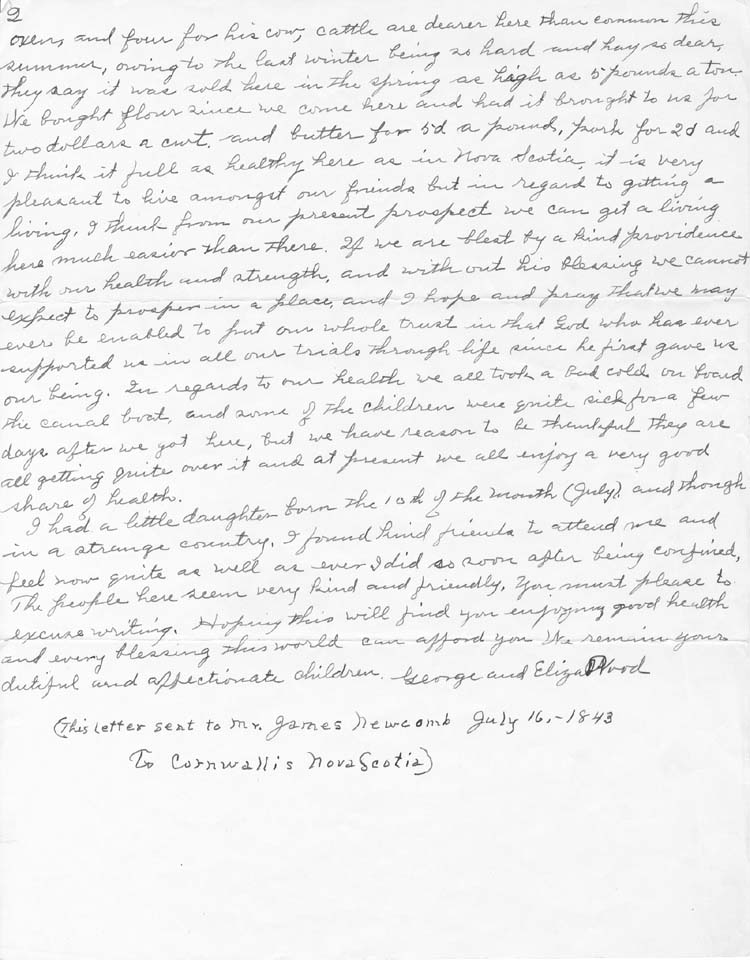 2
oxen, and four for his cow, cattle are dearer here than common this
summer, owing to the last winter being so hard and hay so dear,
they say it was sold here in the spring as high as 5 pounds a ton.
We bought flour since we come here and had it brought to us for
two dollars a cwt. and butter for 5d a pound, pork for 2d and
I think it full as healthy here as in Nova Scotia, it is very
pleasant to live amongst our friends but in regard to getting a
living, I think from our present prospect we can get a living
here much easier than there. If we are blest by a kind providence
with our health and strength, and with out his blessing we cannot
expect to prosper in a place, and I hope and pray that we may
ever be enabled to put our whole trust in that God who has ever
supported us in all our trials through life since he first gave us
our being. In regards to our health we all took a bad cold on board
the canal boat, and some of the children were quite sick for a few
days after we got here, but we have reason to be thankful they are
all getting quite over it and at present we all enjoy a very good
share of health.
I had a little daughter born the 10th of the month (July), and though
in a strange country, I found kind friends to attend me and
feel now quite as well as ever I did so soon after being confined,
The people here seem very kind and friendly, You must please to
excuse writing. Hoping this will find you enjoying good health
and every blessing this world can afford you We remain your
dutiful and affectionate children. George and Eliza Wood
(This letter sent to Mr. James Newcomb July 16,-1843
To Cornwallis Nova Scotia)